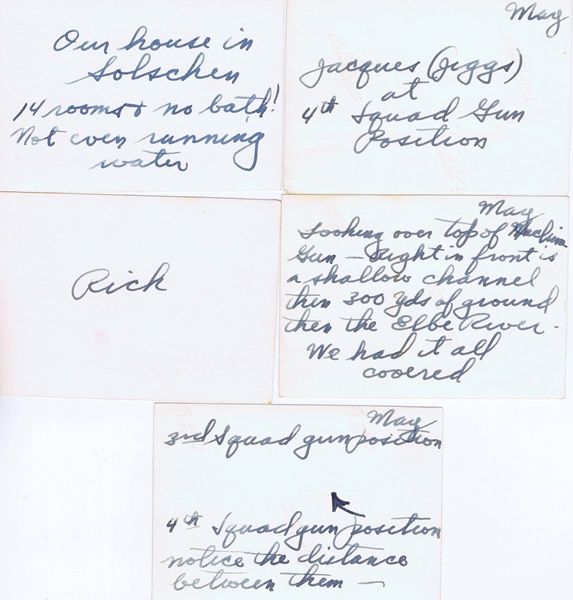 Our house in
Solschen
14 rooms & no bath!
Not even running
water
May
Jacques (Jiggs)
at
4th Squad Gun
Position
Rich
May
Looking over top of Machine
Gun - Right in front is
a shallow channel
then 300 yds of ground
then the Elbe River.
We had it all
covered
May
3rd Squad gun position
4th Squad gun position
notice the distance
between them —